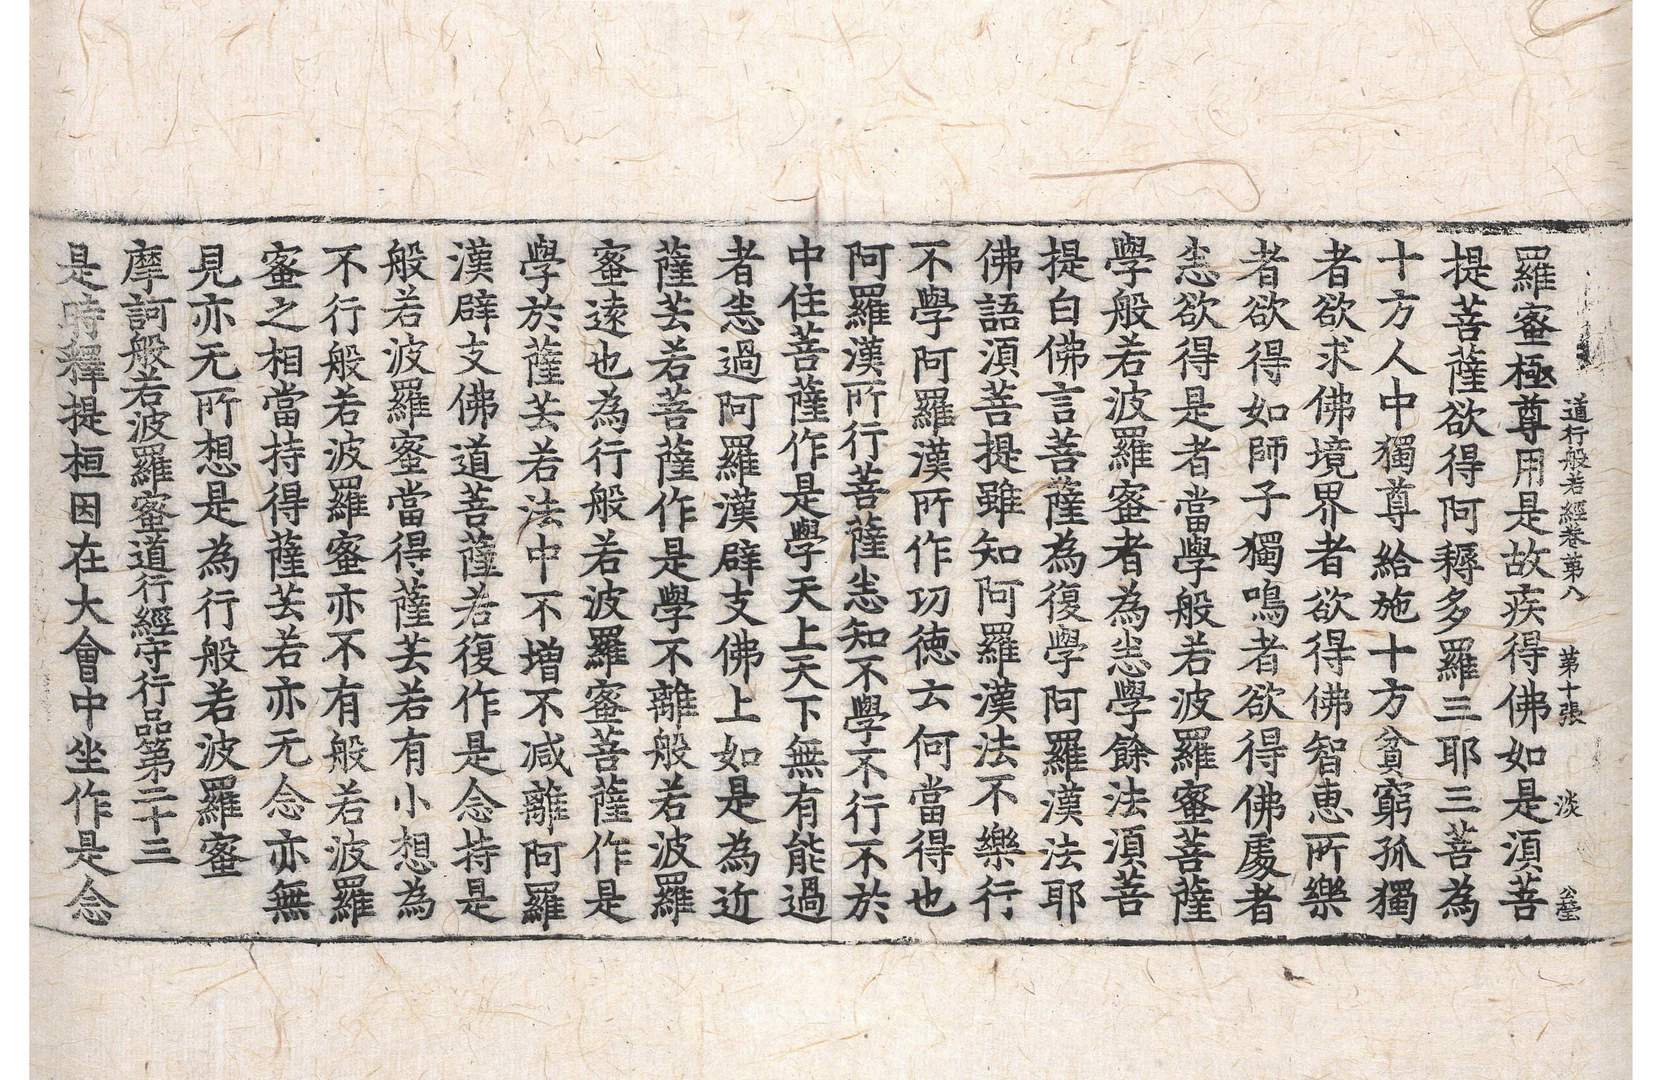 道行般若經卷第八 第十張 淡 公瑩
羅蜜極尊用是故疾得佛如是湏菩
提菩薩欲得阿耨多羅三耶三菩為
十方人中獨尊給施十方貧窮孤獨
者欲求佛境界者欲得佛智恵所樂
者欲得如師子獨鳴者欲得佛處者
悉欲得是者當學般若波羅蜜菩薩
學般若波羅蜜者為悉學餘法湏菩
提白佛言菩薩為復學阿羅漢法耶
佛語湏菩提雖知阿羅漢法不樂行
不學阿羅漢所作功徳云何當得也
阿羅漢所行菩薩悉知不學不行不於
中住菩薩作是學天上天下無有能過
者悉過阿羅漢辟支佛上如是為近
薩芸若菩薩作是學不離般若波羅
蜜遠也為行般若波羅蜜菩薩作是
學於薩芸若法中不增不减離阿羅
漢辟支佛道菩薩若復作是念持是
般若波羅蜜當得薩芸若有小想為
不行般若波羅蜜亦不有般若波羅
蜜之相當持得薩芸若亦无念亦無
見亦无所想是為行般若波羅蜜
摩訶般若波羅蜜道行經守行品第二十三
是時釋提桓因在大會中坐作是念